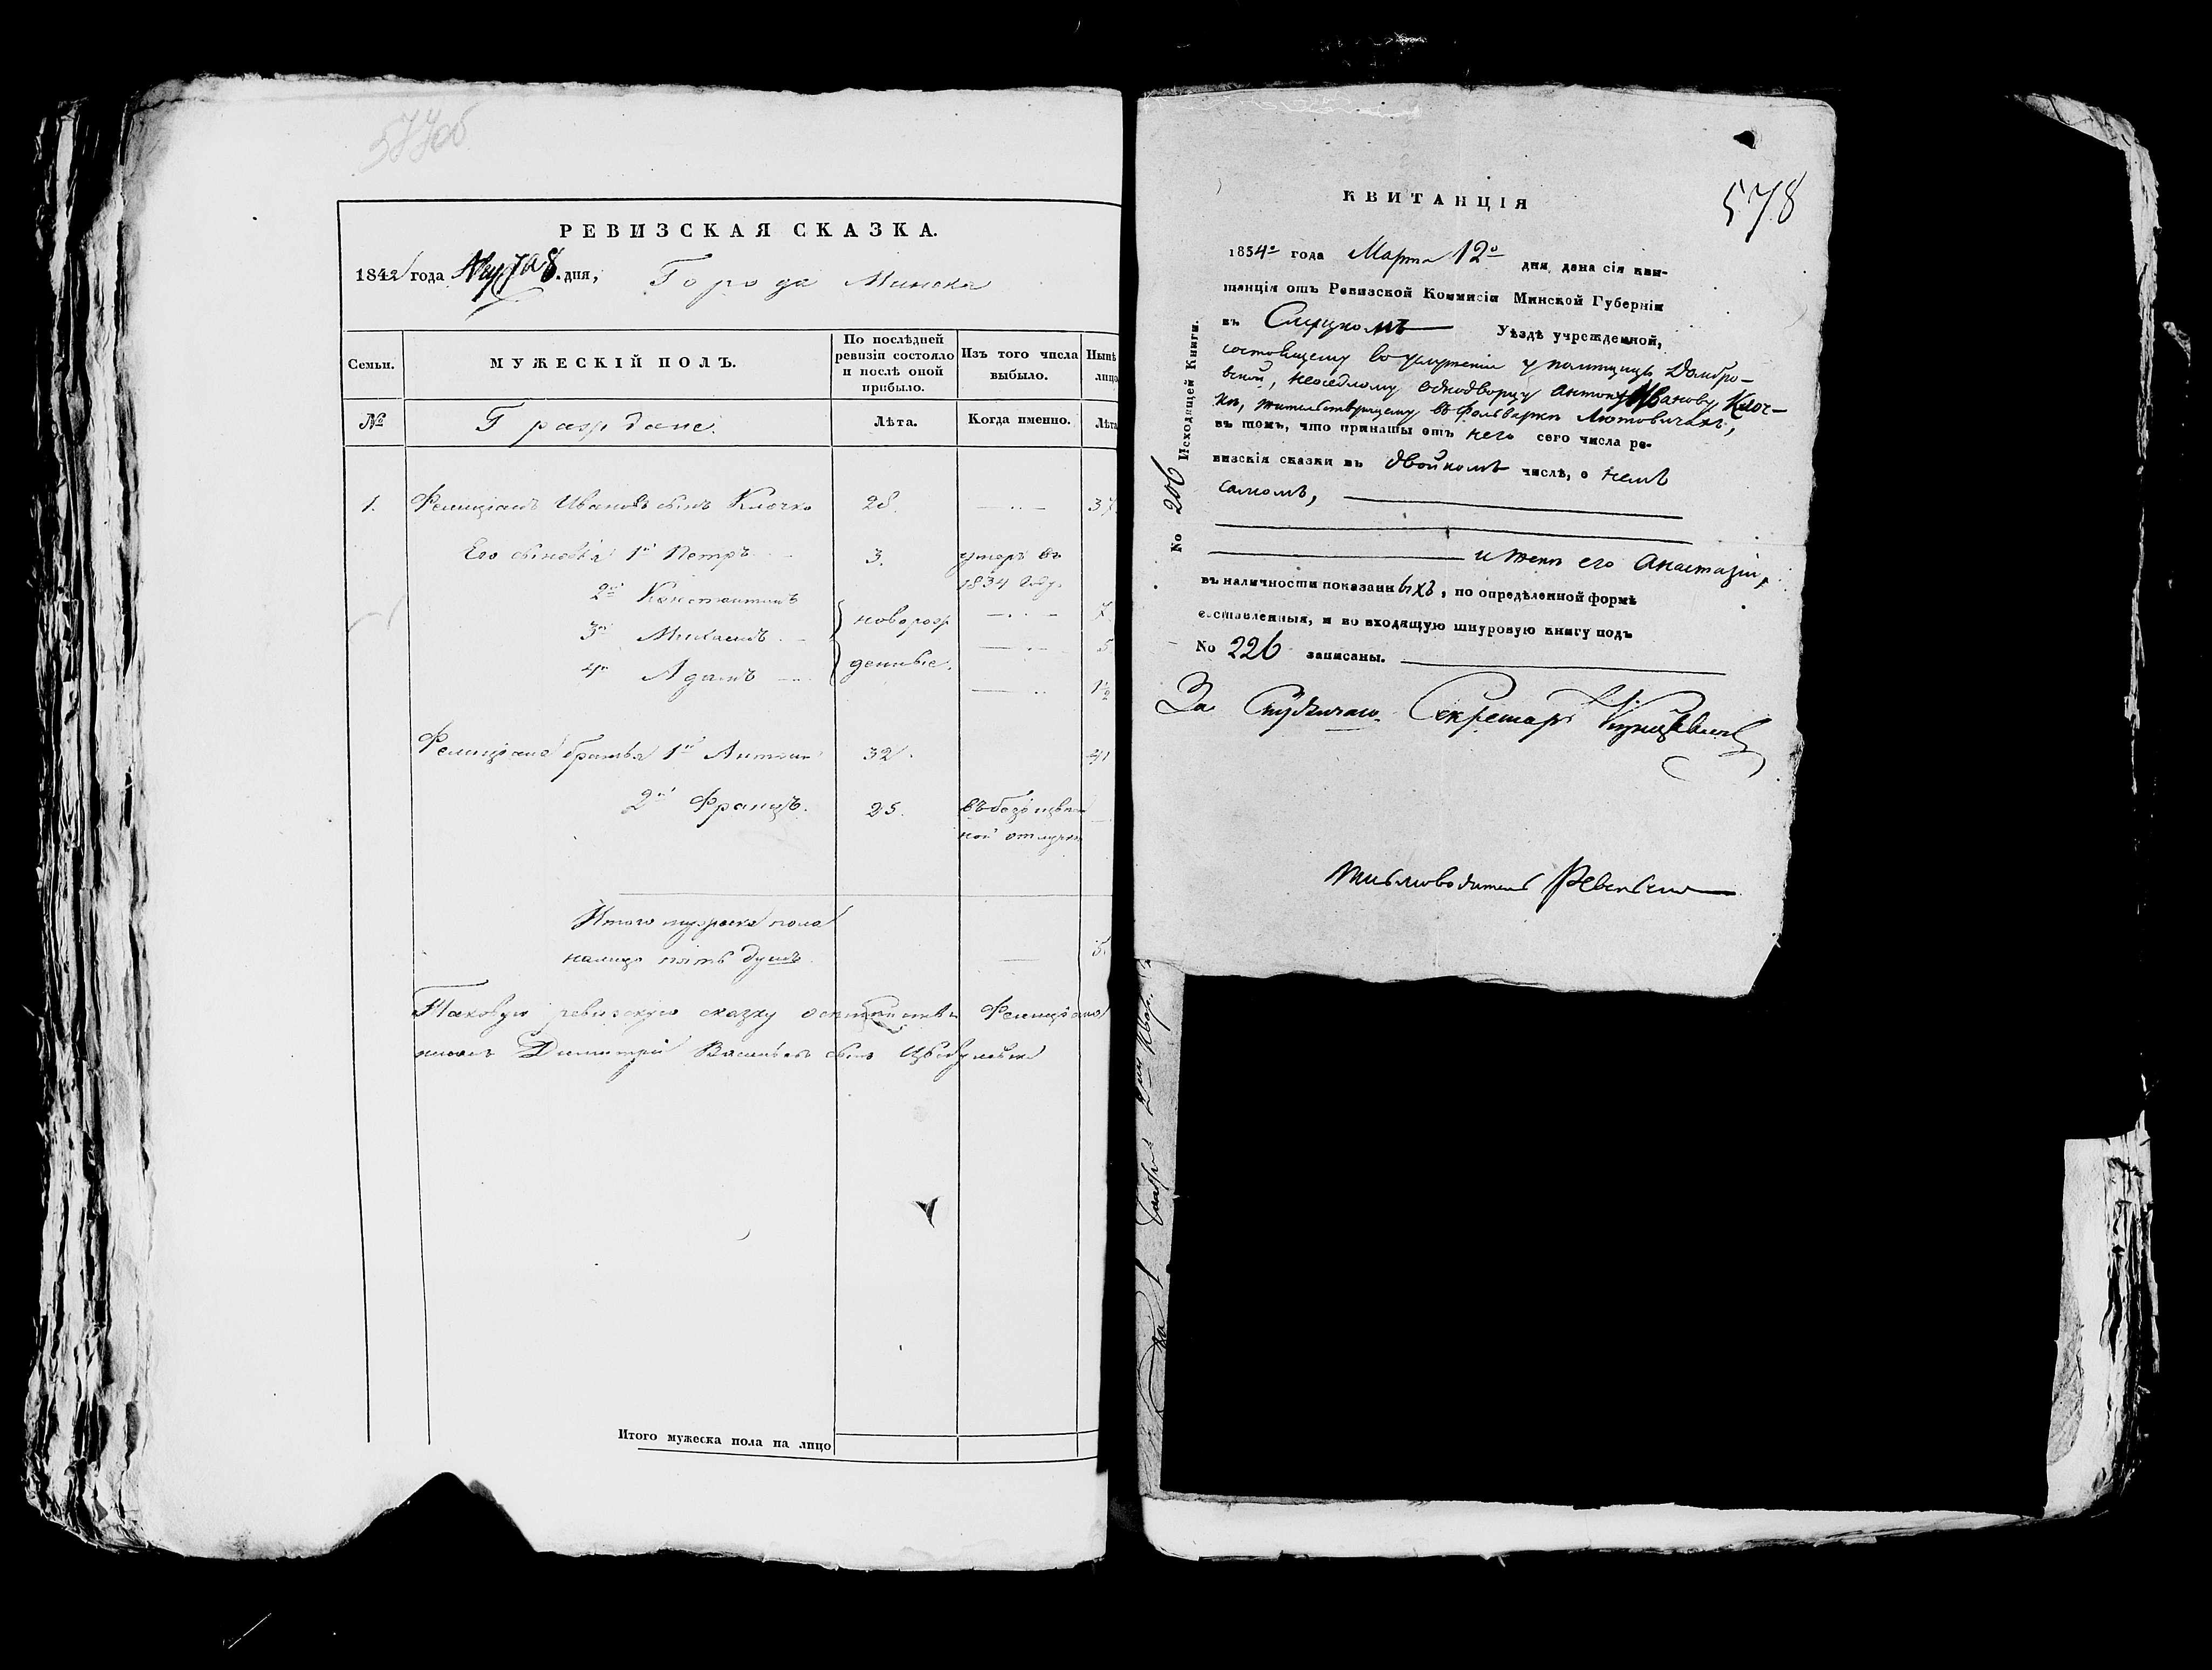 577об
РЕВИЗСКАЯ СКАЗКА.
1842 года дня, Города Минска
Семьи.
МУЖЕСКІЙ ПОЛЪ.
По послѣдней ревизіи состояло и послѣ оной прибыло.
Изъ того числа выбыло.
Нынѣ лицо
№
Граждане.
Лѣта.
Когда именно.
Лѣта
1. Фелиціанъ Ивановъ сынъ Клочко 28. 37
Его сыновья 1й Петръ 3. умеръ въ
1834 году
2й Константинъ 7
3й Михаилъ новорож 5
4й Адамъ денные. 1½
Фелиціана братья 1й Антонъ 32. 41
2й Францъ. 25. въ безъизвѣст
ной отлучкѣ
Итого мужеска пола
налицо пять душъ 5.
Таковую ревизскую сказку Фелиціана
Димитрій Васильевъ сынъ
Итого мужеска пола на лицо
578
КВИТАНЦІЯ
1854го года Марта 12го дня, дана сія кви-
танція отъ Ревизской Коммисіи Минской Губерніи
въ Слуцкомъ Уѣздѣ учрежденной,
состоящему во услуженіи у помѣщицы Домбро-
вской, неосѣдлому однодворцу Антону Иванову Клоч-
кѣ, жительствующему въ фольваркѣ Лютовичахъ,
въ томъ, что приняты отъ него сего числа ре-
визскія сказки въ двойномъ числѣ, о немъ
самомъ,
и женѣ его Анастазіи,
въ наличности показанныхъ, по опредѣленной формѣ
составленныя, и во входящую шнуровую книгу подъ
No 226 записаны.
No 206 Исходящей Книги.
За Секретарь
Письмоводитель